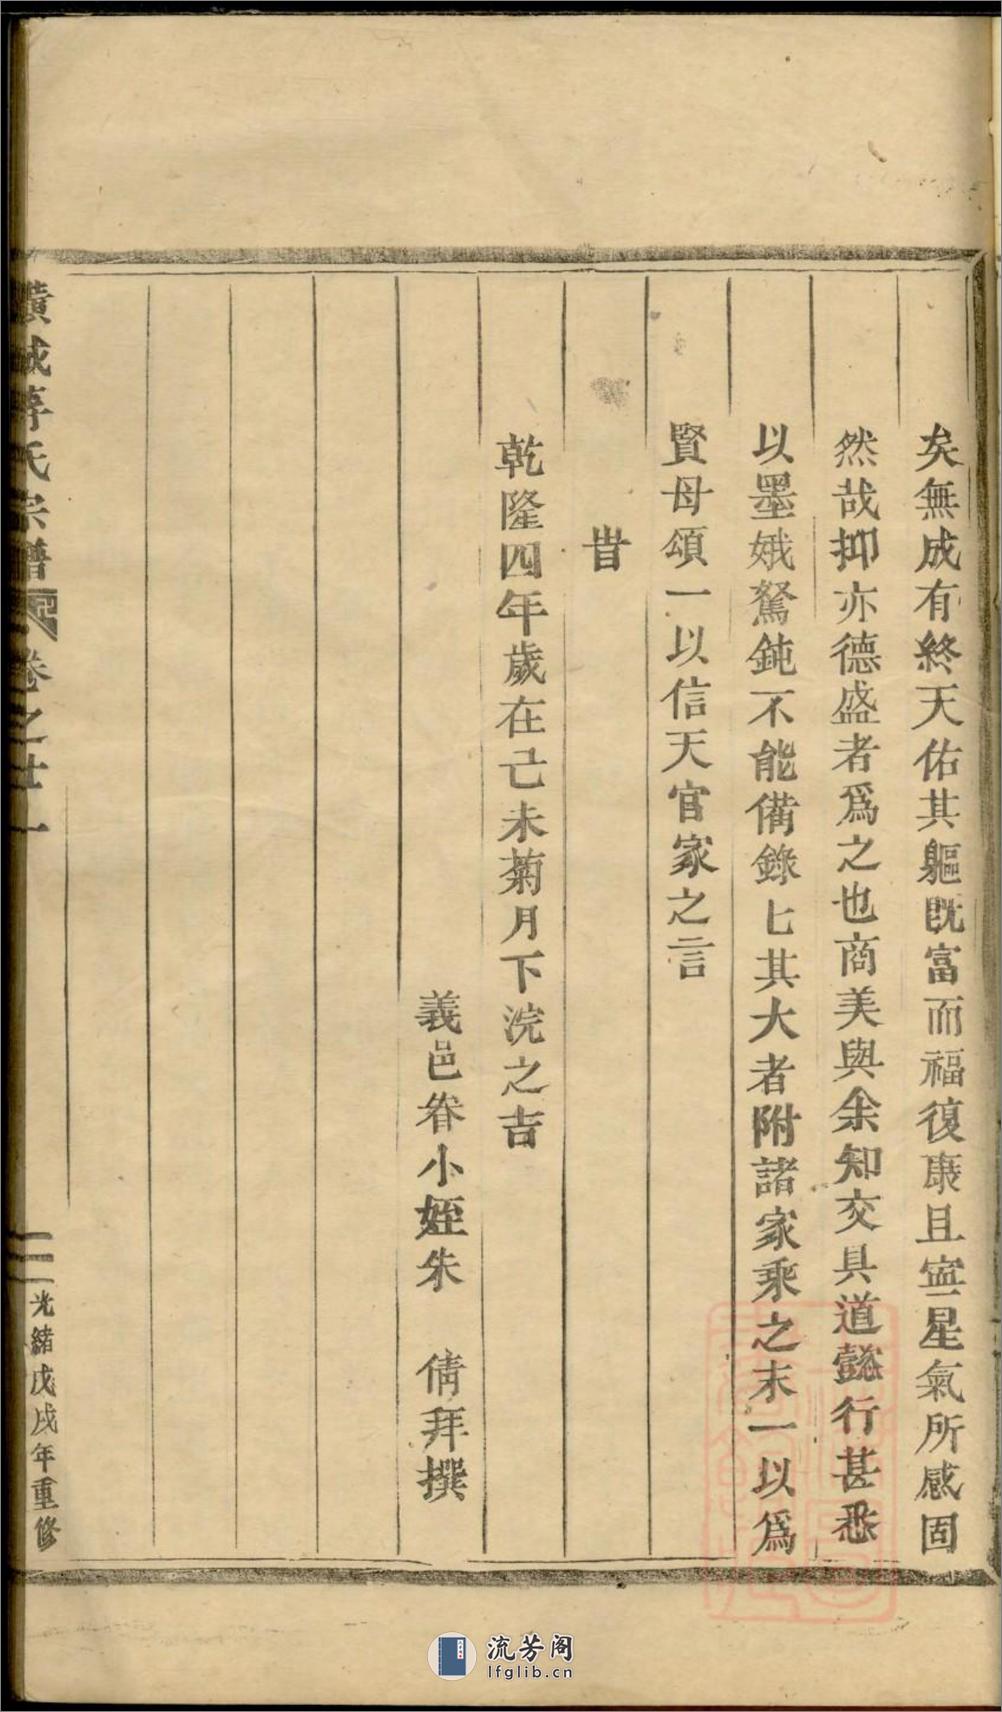 矣無成有終天佑其軀旣富而福復康且寍星氣所感固
然哉抑亦德盛者爲之也商美與余知交具道懿行甚悉
以墨娥駑鈍不能備錄匕其大者附諸家乘之末一以爲
賢母頌一以信天官家之言
旹
乾隆四年歲在己未菊月下浣之吉
義邑眷小姪朱 倩拜撰
氏宗譜 卷之廿一
二 光緒戊戌年重修
流芳阁
lfglib.cn